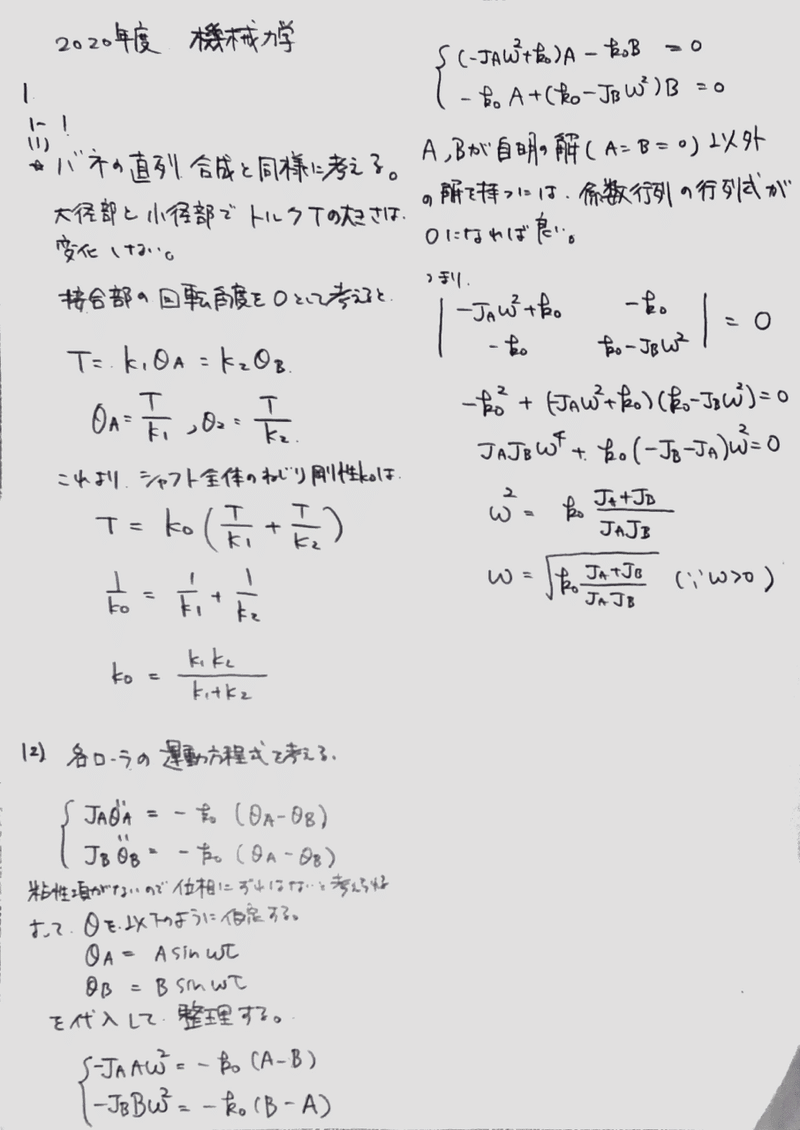 2020年度 機械力学
1
1-1
(1)
* バネの直列 合成と同様に考える。
大径部と小径部で トルクTの大きさは.
変化しない。
接合部の回転角度を0として考えると.
T = k₁θA = k₂θB.
θA = T/k₁ , θ₂ = T/k₂.
これより. シャフト全体のねじり剛性k₀は.
T = k₀(T/k₁ + T/k₂)
1/k₀ = 1/k₁ + 1/k₂
k₀ = k₁k₂/(k₁+k₂)
(2) 各ローラの運動方程式を考える.
JAθ̈A = -k₀ (θA-θB)
JBθ̈B = -k₀ (θA-θB)
粘性項がないので位相にずれはないと考えられる
よって. θを以下のように仮定する。
θA = A sin ωt
θB = B sin ωt
を代入して. 整理する。
-JAAω² = -k₀ (A-B)
-JBBω² = -k₀ (B-A)
(-JAω²+k₀)A - k₀B = 0
-k₀A+(k₀-JBω²)B = 0
A, Bが自明の解(A=B=0)以外
の解を持つには. 係数行列の行列式が
0になれば良い。
つまり.
| -JAω²+k₀ -k₀ |
| -k₀ k₀-JBω² | = 0
-k₀² + (-JAω²+k₀)(k₀-JBω²)=0
JAJBω⁴ + k₀(-JB-JA)ω²=0
ω² = k₀ (JA+JB)/(JAJB)
ω = √(k₀ (JA+JB)/(JAJB)) (∵ω>0)